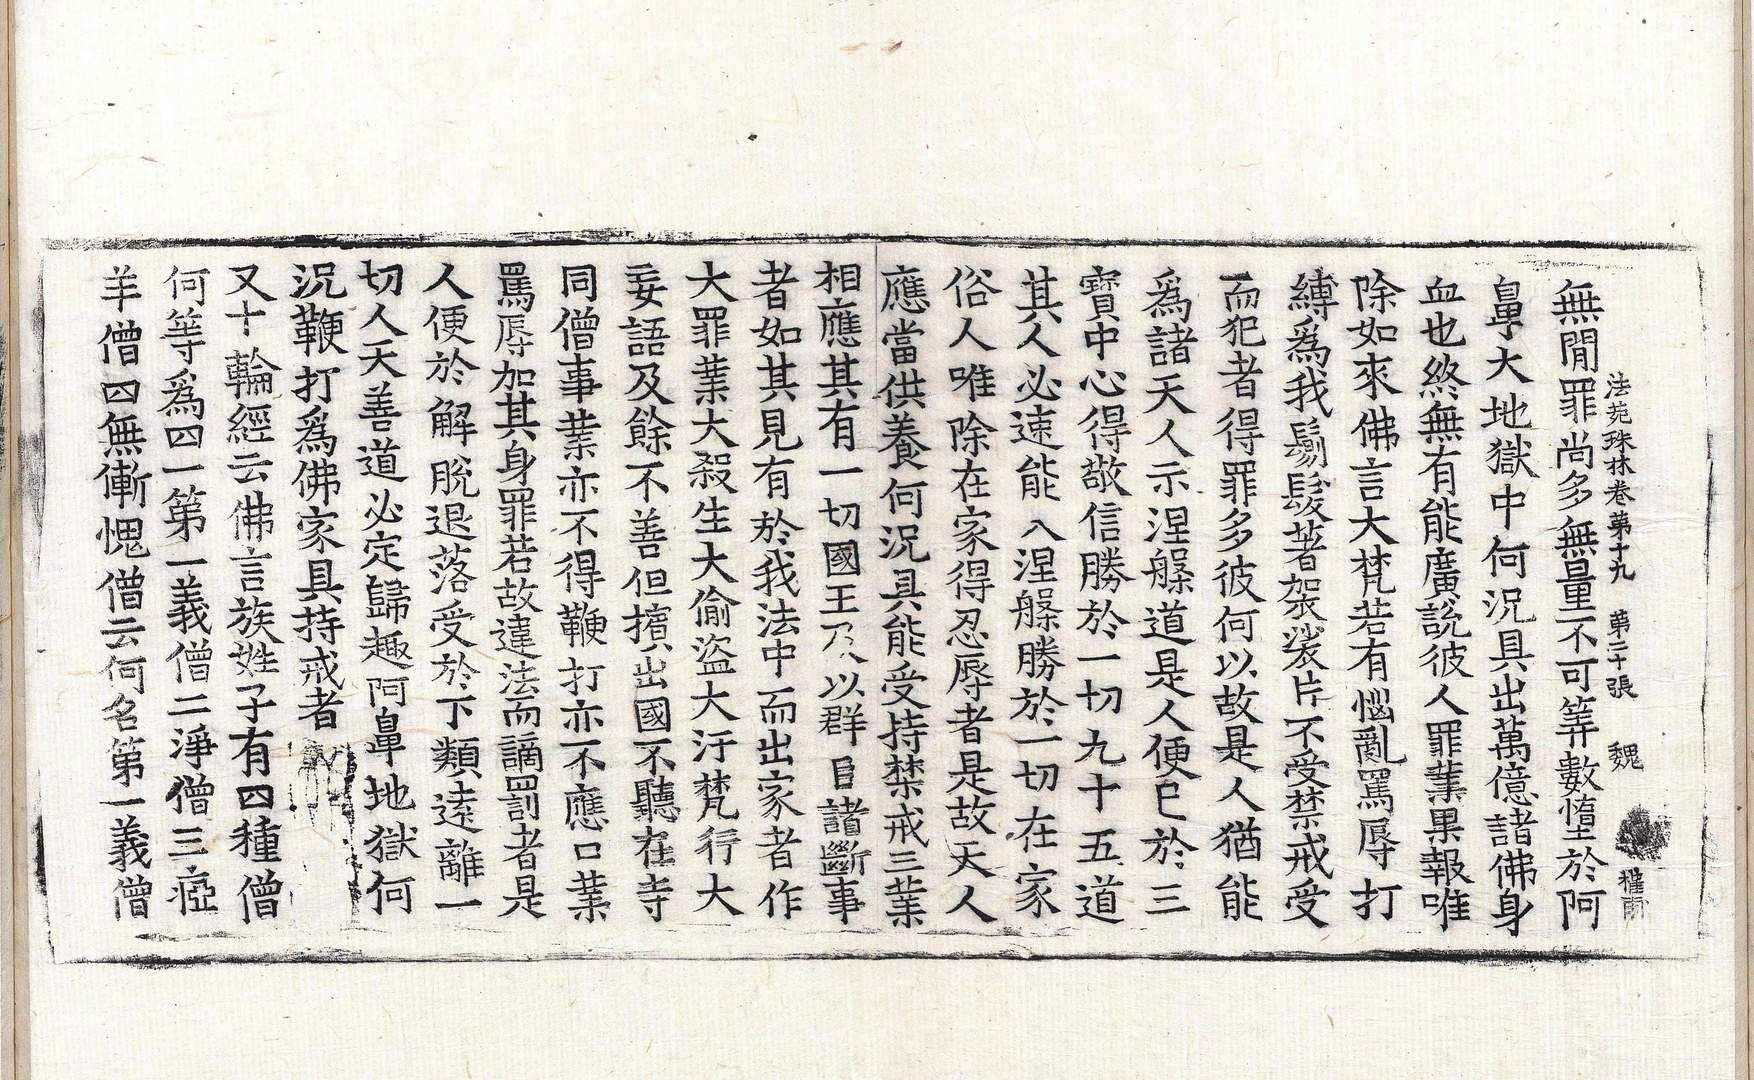 法苑珠林卷第十九　第二十張　魏
無閒罪尚多無量不可筭數墮於阿
鼻大地獄中何況具出萬億諸佛身
血也終無有能廣說彼人罪業果報唯
除如來佛言大梵若有惱亂罵辱打
縛爲我鬀髮著袈裟片不受禁戒受
而犯者得罪多彼何以故是人猶能
爲諸天人示涅槃道是人便已於三
寶中心得敬信勝於一切九十五道
其人必速能入涅槃勝於一切在家
俗人唯除在家得忍辱者是故天人
應當供養何況具能受持禁戒三業
相應其有一切國王及以群臣諸斷事
者如其見有於我法中而出家者作
大罪業大殺生大偷盜大汙梵行大
妄語及餘不善但擯出國不聽在寺
同僧事業亦不得鞭打亦不應口業
罵辱加其身罪若故違法而謫罰者是
人便於解脫退落受於下類遠離一
切人天善道必定歸趣阿鼻地獄何
況鞭打爲佛家具持戒者
又十輪經云佛言族姓子有四種僧
何等爲四一第一義僧二淨僧三瘂
羊僧四無慚愧僧云何名第一義僧